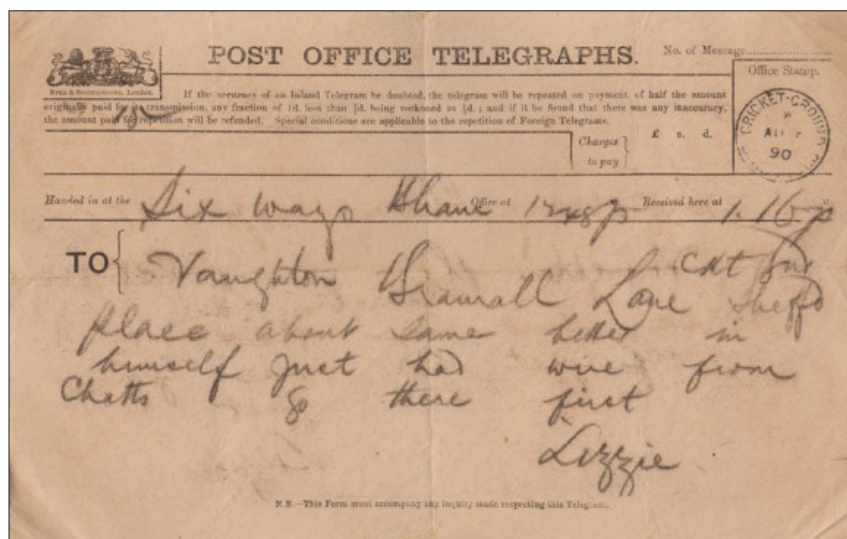 POST OFFICE TELEGRAPHS.
No. of Message
EYRE & SPOTTISWOODE, London.
If the accuracy of an Inland Telegram be doubted, the telegram will be repeated on payment of half the amount
originally paid for its transmission, any fraction of 1d. less than ½d. being reckoned as ½d.; and if it be found that there was any inaccuracy,
the amount paid for repetition will be refunded. Special conditions are applicable to the repetition of Foreign Telegrams.
Office Stamp.
CRICKET-GROUND
90
Charges
to pay
£ s. d.
Handed in at the Six Ways Bham Office at 1248p Received here at 1.16p
TO
Vaughton Bramall Lane Sheffd
place about same better in
himself Just had wire from
Chatts go there first
Lizzie
N.B.—This Form must accompany any inquiry made respecting this Telegram.